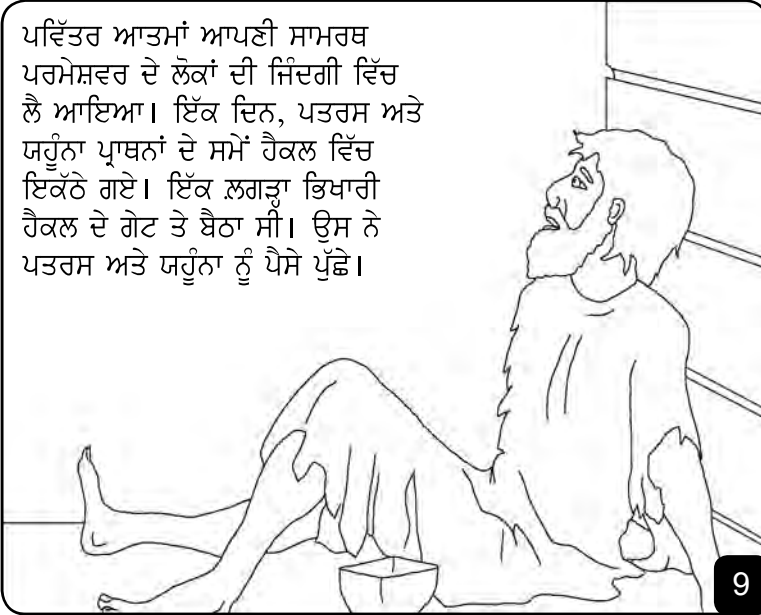 ਪਵਿੱਤਰ ਆਤਮਾਂ ਆਪਣੀ ਸਾਮਰਥ
ਪਰਮੇਸ਼ਵਰ ਦੇ ਲੋਕਾਂ ਦੀ ਜਿੰਦਗੀ ਵਿੱਚ
ਲੈ ਆਇਆ। ਇੱਕ ਦਿਨ, ਪਤਰਸ ਅਤੇ
ਯਹੂੰਨਾ ਪ੍ਰਾਥਨਾਂ ਦੇ ਸਮੇਂ ਹੈਕਲ ਵਿੱਚ
ਇਕੱਠੇ ਗਏ। ਇੱਕ ਲ਼ਗੜਾ ਭਿਖਾਰੀ
ਹੈਕਲ ਦੇ ਗੇਟ ਤੇ ਬੈਠਾ ਸੀ। ਉਸ ਨੇ
ਪਤਰਸ ਅਤੇ ਯਹੂੰਨਾ ਨੂੰ ਪੈਸੇ ਪੁੱਛੇ।
9